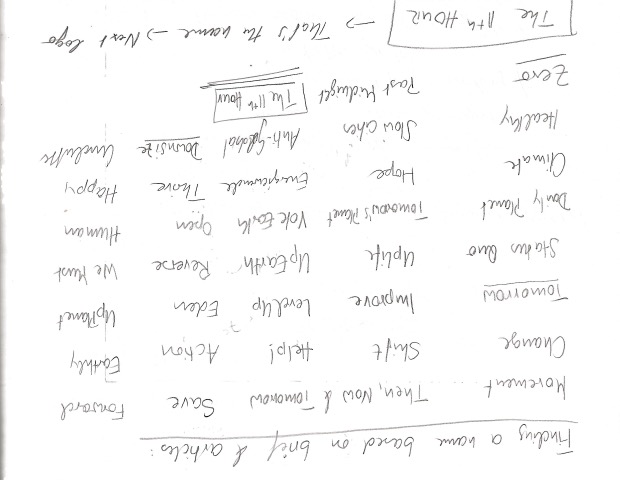 Finding a name based on brief & articles:
Movement Then, Now & Tomorrow Save Forward
Change Shift Help! Action Earthly
Tomorrow Improve Level Up Eden UpPlanet
Status Quo Uplift UpEarth Reverse We Must
Daily Planet Tomorrow's Planet Vote Earth Open Human
Climate Hope Thrive Happy
Healthy Slow Cities Anti-Global Downsize
Zero Past Midnight The 11th Hour
The 11th Hour → That's the name → Next logo